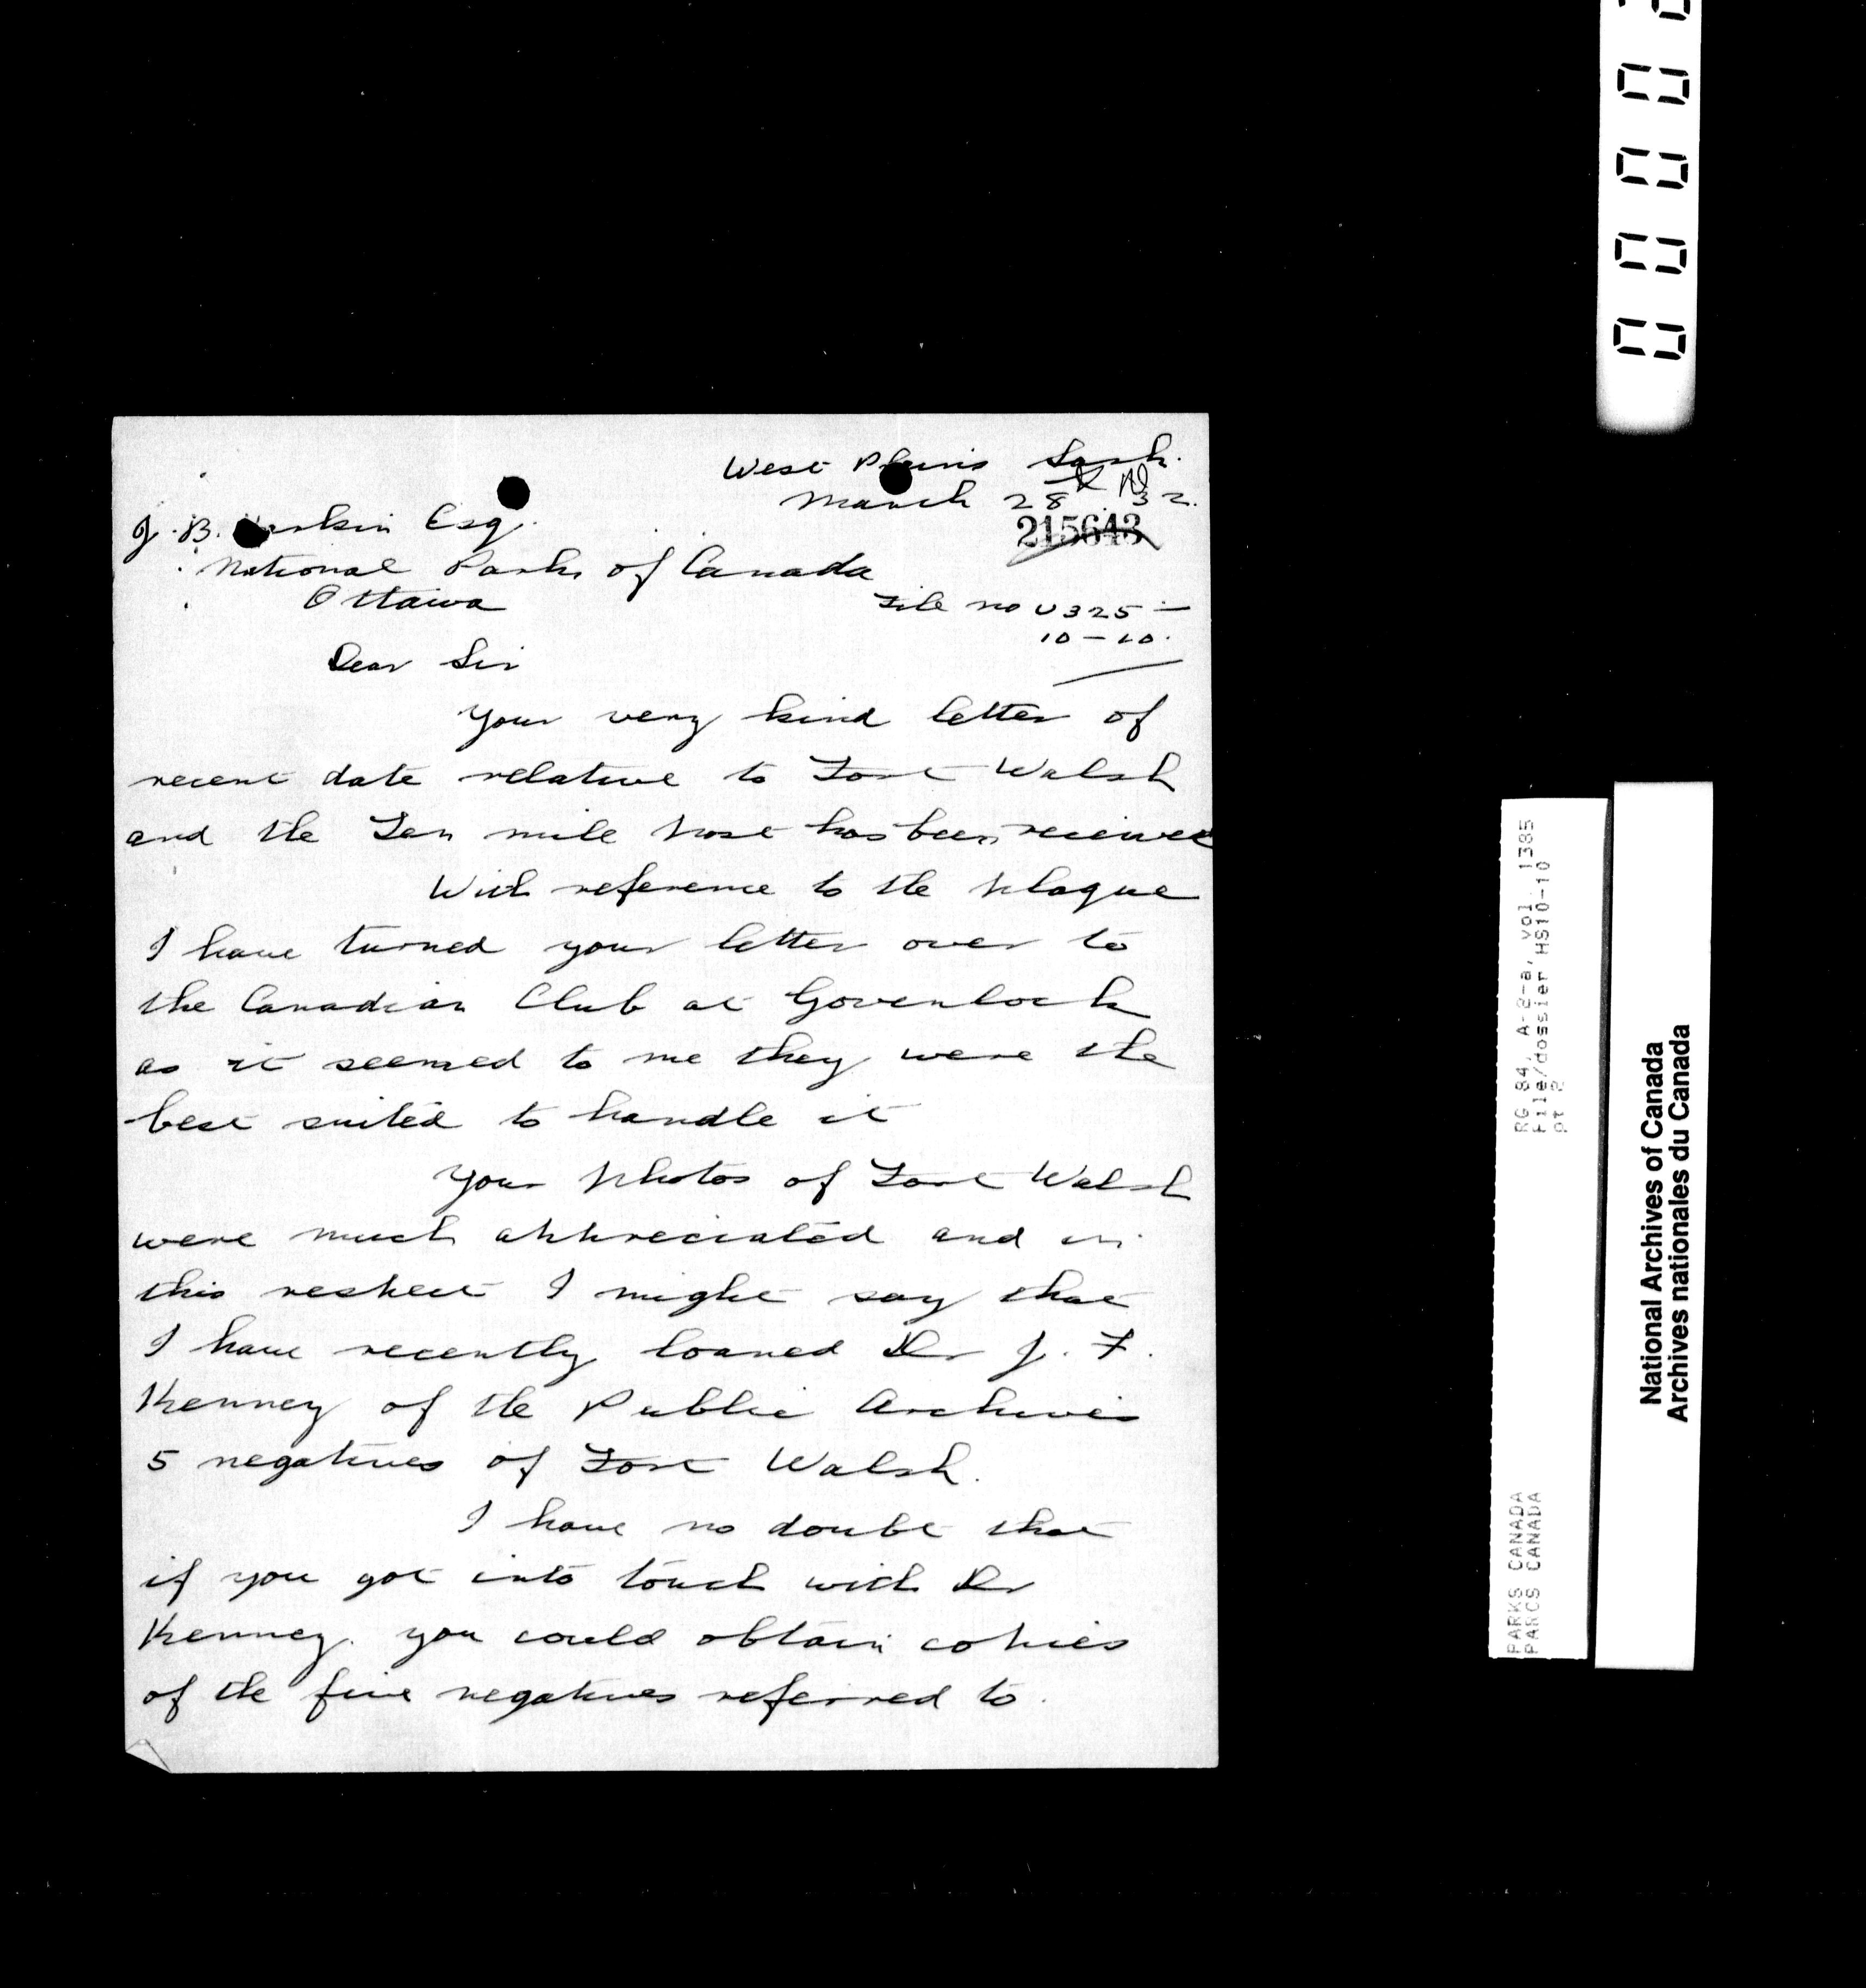 West Plains Sask.
March 28 32.
215643
J. B. Harkin Esq.
National Parks of Canada
Ottawa
File no U325-
10-10.
Dear Sir
Your very kind letter of
recent date relative to Fort Walsh
and the Ten mile post has been received
With reference to the plaque
I have turned your letter over to
the Canadian Club at Govenlock
as it seemed to me they were the
best suited to handle it
Your photos of Fort Walsh
were much appreciated and in
this respect I might say that
I have recently loaned Dr J. F.
Kenney of the Public Archives
5 negatives of Fort Walsh.
I have no doubt that
if you got into touch with Dr
Kenney. you could obtain copies
of the five negatives referred to.
RG 84, A-2-a, vol 1385
File/dossier HS10-10
pt 2
PARKS CANADA
PARCS CANADA
National Archives of Canada
Archives nationales du Canada